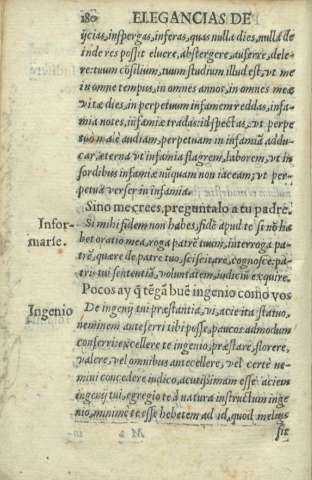 180 ELEGANCIAS DE
ijcias, inspergas, inseras, quas nulla dies, nulla de
inde res possit eluere, abstergere, auferre, dele-
re: tuum cōsilium, tuum studium illud est, vt me
iu omne tempus, in omnes annos, in omnes meæ
vitæ dies, in perpetuum infamem reddas, infa-
mia notes, infamiæ tradas: id spectas, vt perpe
tuo malè audiam, perpetuam in infamiā addu-
car, æterna vt infamia flagrem, laborem, vt in
sordibus infamiæ niiquam non iaceam, vt per-
petuâ verser in infamia.
Sino me crees, preguntalo a tu padre.
Infor-
marse.
Si mihi fidem non habes, fidē apud te si nō ha
bet oratio mea, roga patrē tuum, interroga pa-
trē, quære de patre tuo, sciscitare, cognosce: pa-
tris tui sententiā, voluntatem, iudiciū exquire.
Pocos ay q̃ tēgā buē ingenio como vos
Ingenio
De ingenij tui præstantia, vi, acie ita statuo,
neminem anteferri tibi posse, paucos admodum
conferri: excellere te ingenio, præstare, florere,
valere, vel omnibus antecellere, vel certè ne-
mini concedere iudico, acutissimam esse aciem
ingenij tui, egregiè te à natura instructum inge
nio, minimè te esse hebetem ad id, quod melius
sit